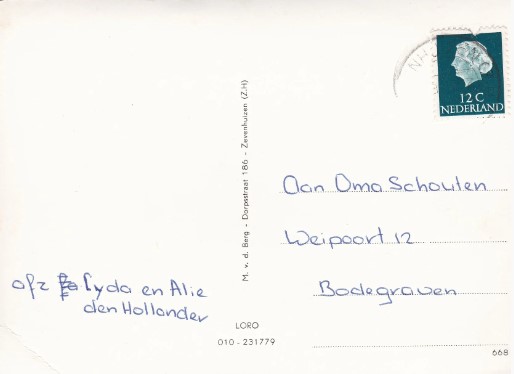 NH
12 C
NEDERLAND
M. v. d. Berg - Dorpsstraat 186 - Zevenhuizen (Z.H)
Aan Oma Schouten
Weipoort 12
Bodegraven
afz Lyda en Alie
den Hollander
LORO
010 - 231779
668